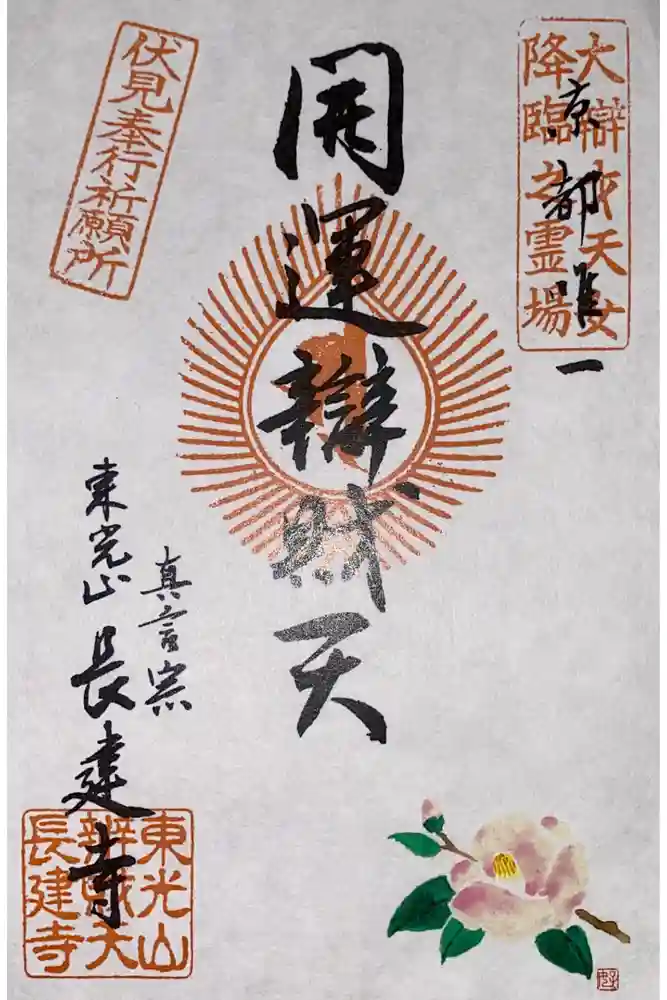 大辯才天女
降臨之霊場
京都唯一
開運辯財天
伏見奉行祈願所
真言宗
東光山
長建寺
東光山
辨財天
長建寺